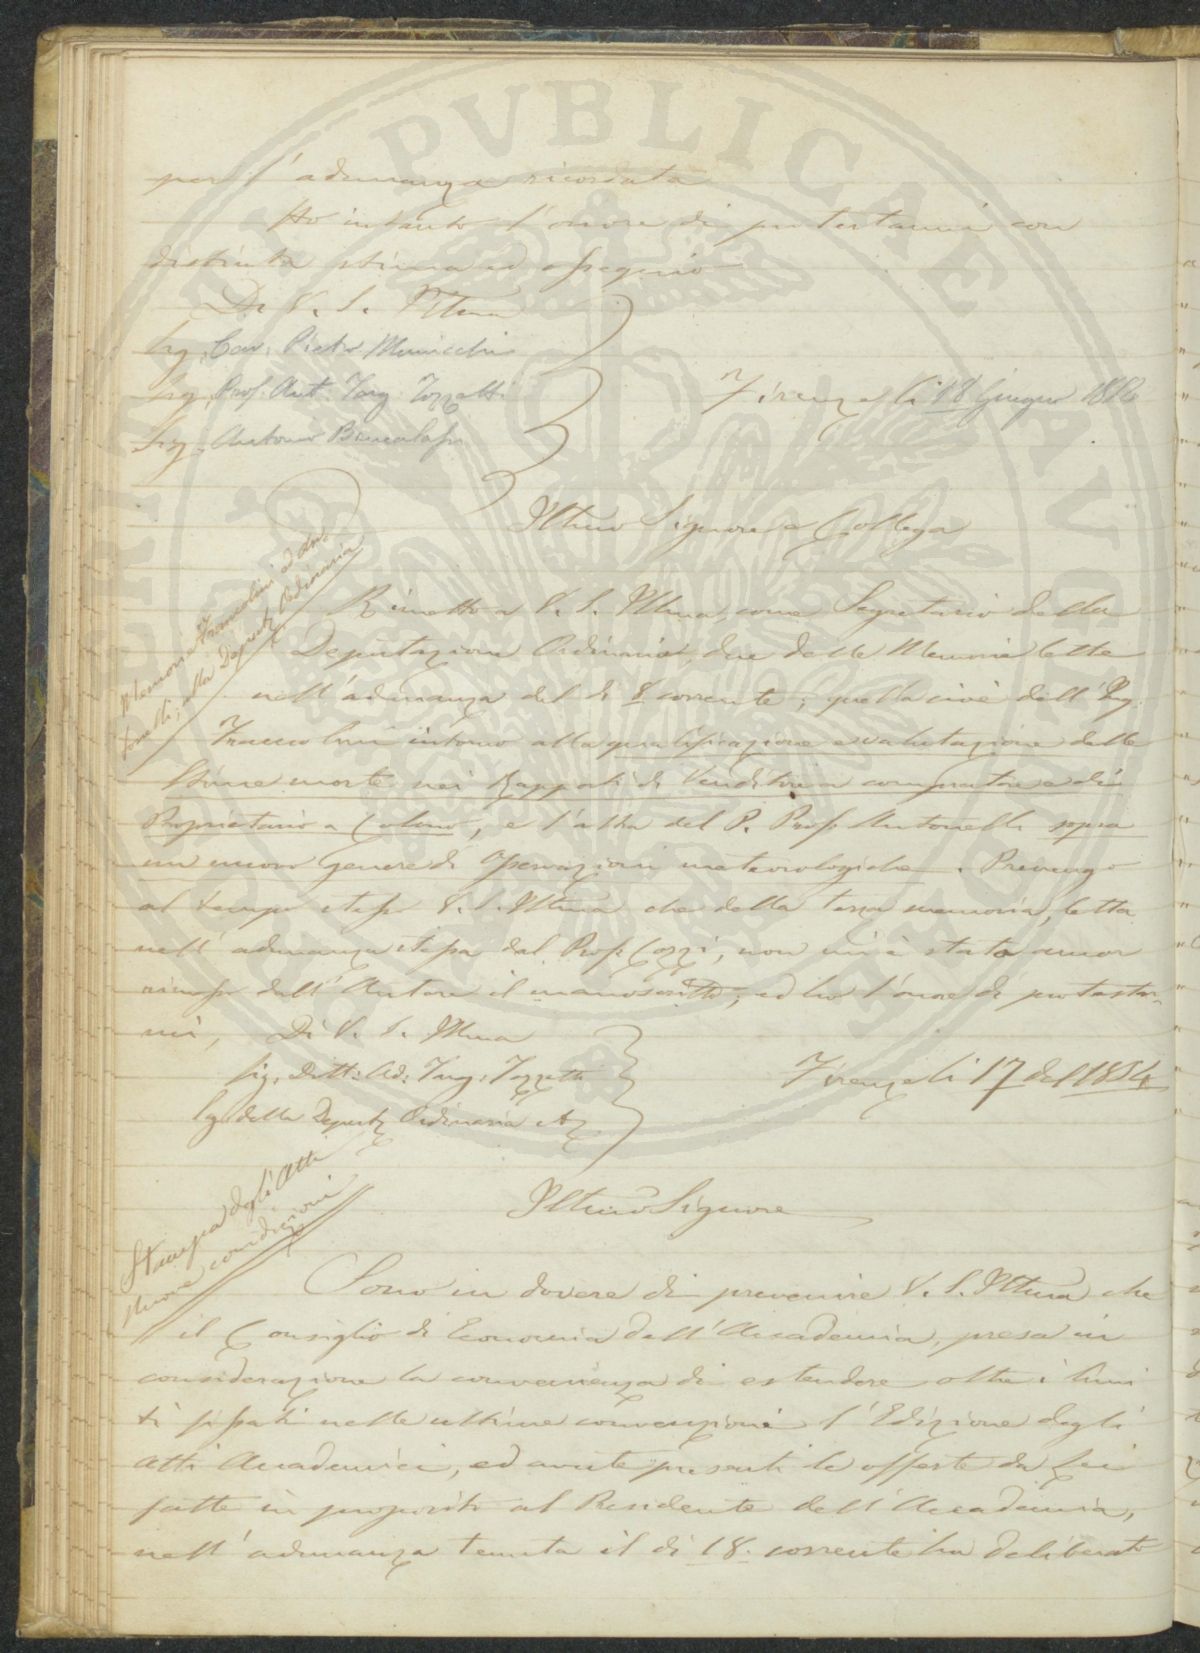 per l'adunanza ricordata
Ho intanto l'onore di protestarmi con
distinta stima ed ossequio
Di V. S. Illma
Sig. Cav. Pietro Municchi
Sig. Prof. Ant. Targ. Tozzetti
Sig. Antonio Brucalassi
Firenze li 18 Giugno
Illmo Signore e Collega
Memorie Francolini ed An-
tonelli, alla Deputz Ordinaria
Rimetto a V. S. Illma, come Segretario della
Deputazione Ordinaria, due delle Memorie lette
nell'adunanza del dì 8 corrente; quella cioè dell'Ing.
Francolini intorno alla qualificazione e valutazione delle
Stime morte nei Rapporti di Venditore a compratore e di
Proprietario a Colono, e l'altra del P. Prof. Antonelli sopra
un nuovo genere di Osservazioni meteorologiche. Prevengo
al tempo stesso V. S. Illma che della terza memoria, letta
nell'adunanza stessa dal Prof. Cozzi, non mi è stato ancor
rimesso dall'Autore il manoscritto; ed ho l'onore di protestar-
mi, Di V. S. Illma
Sig. Dott: Ad: Targ: Tozzetti
Sg. della Deputz Ordinaria
Firenze li 17 del 1854
Illmo Signore
Stampa degli Atti
Nuove condizioni
Sono in dovere di prevenire V. S. Illma che
il Consiglio di Economia dell'Accademia, presa in
considerazione la convenienza di estendere oltre i limi
ti fissati nelle ultime convenzioni l'Edizione degli
Atti Accademici, ed avute presenti le offerte da Lei
fatte in proposito al Presidente dell'Accademia,
nell'adunanza tenuta il dì 18. corrente ha deliberato
PVBLICAE